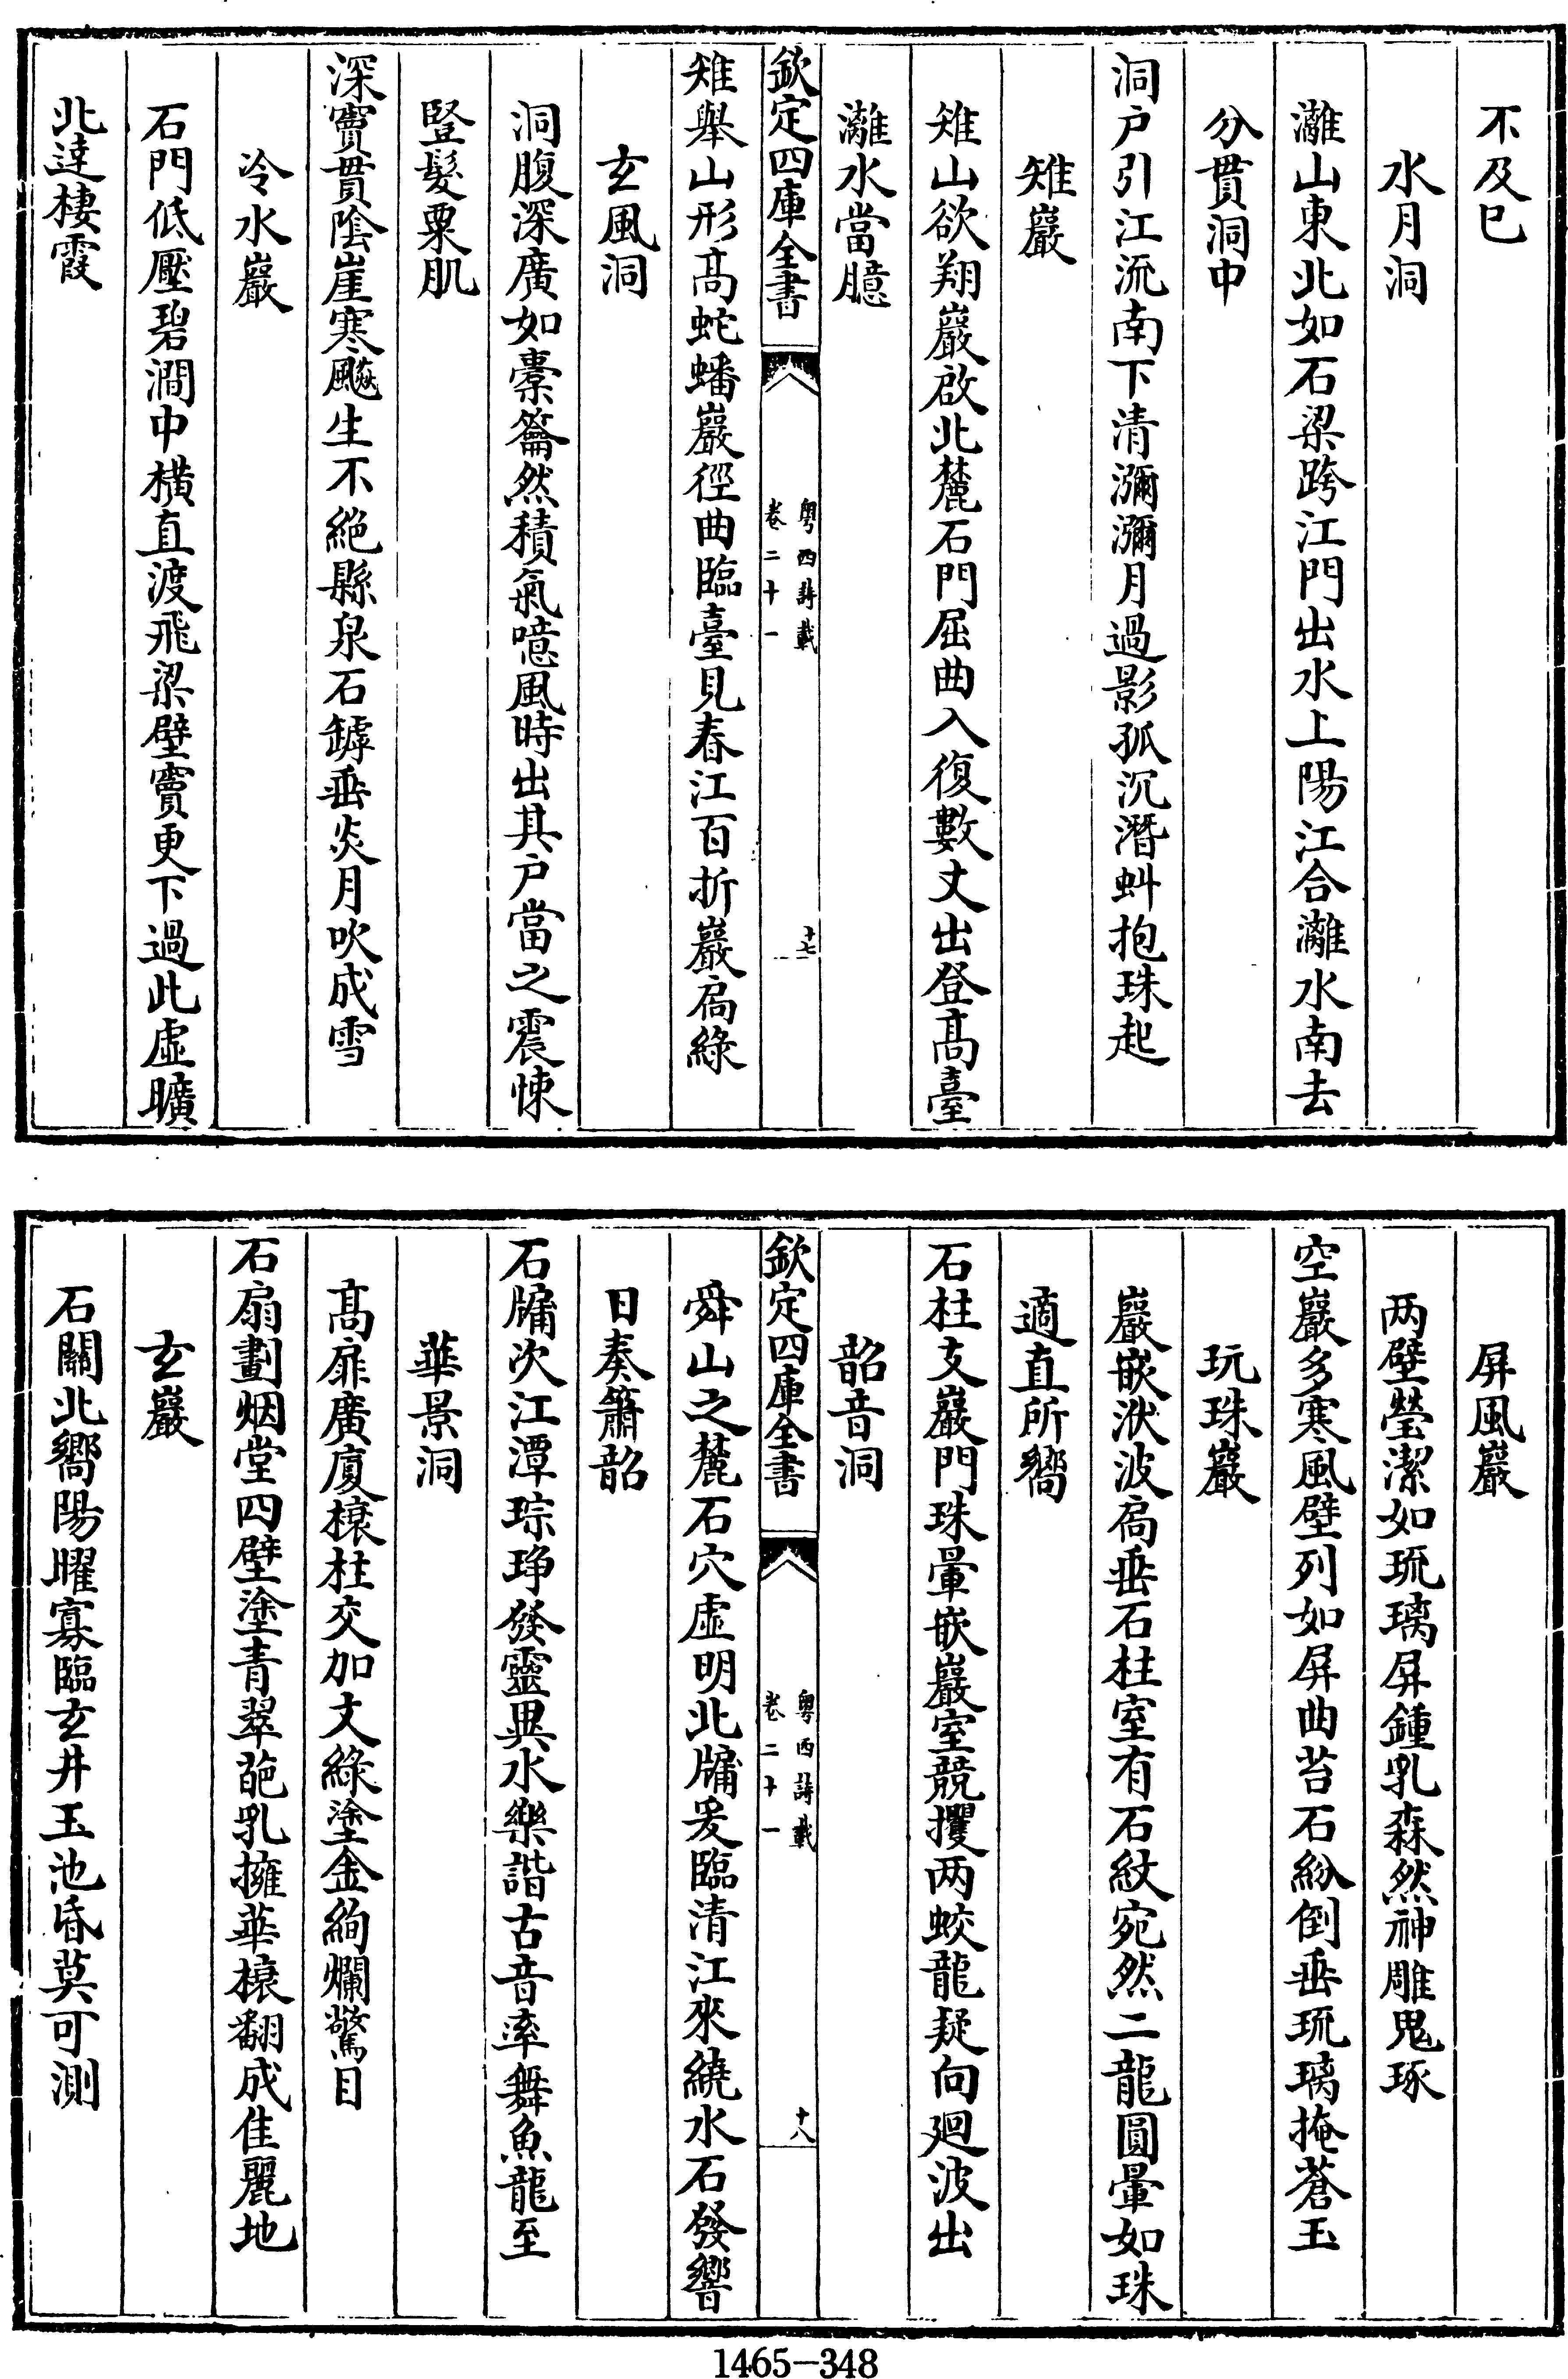 不及巳
水月洞
灕山東北如石梁跨江門出水上陽江合灕水南去
分貫洞中
洞户引江流南下清瀰瀰月過影孤沉潛虯抱珠起
雉巖
雉山欲翔巖啟北麓石門屈曲入復數丈出登髙臺
灕水當臆
欽定四庫全書
粤西詩載
卷二十一
十七
雉舉山形髙蛇蟠巖徑曲臨臺見春江百折巖扃綠
玄風洞
洞腹深廣如橐籥然積氣噫風時出其户當之震悚
豎髮粟肌
深竇貫陰崖寒飈生不絕縣泉石罅垂炎月吹成雪
冷水巖
石門低壓碧澗中橫直渡飛梁壁竇更下過此虛曠
北達棲霞
屏風巖
两壁瑩潔如琉璃屏鍾乳森然神雕鬼琢
空巖多寒風壁列如屏曲苔石紛倒垂琉璃掩蒼玉
玩珠巖
巖嵌洑波扃垂石柱室有石紋宛然二龍圓暈如珠
適直所嚮
石柱支巖門珠暈嵌巖室競攫两蛟龍疑向廻波出
韶音洞
欽定四庫全書
粤西詩載
卷二十一
十八
舜山之麓石穴虛明北牖爰臨清江來繞水石發響
日奏簫韶
石牖次江潭琮琤發靈異水樂諧古音率舞魚龍至
華景洞
髙扉廣厦榱柱交加丈綠塗金絢爛驚目
石扇劃烟堂四壁塗青翠葩乳擁華榱翻成佳麗地
玄巖
石關北嚮陽曜寡臨玄井玉池昏莫可測
1465-348